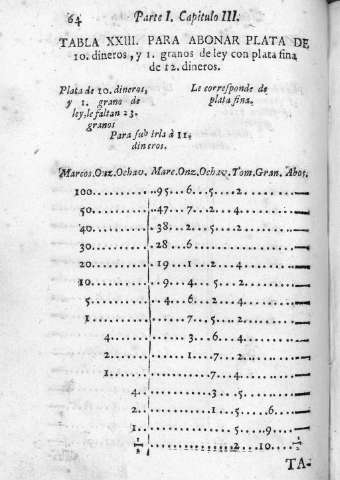 64 Parte I. Capitulo III.
TABLA XXIII. PARA ABONAR PLATA DE
10. dineros, y 1. granos de ley con plata fina
de 12. dineros.
Plata de 10. dineros,
y 1. grano de
ley, le faltan 23.
granos
Para subirla à 11.
dineros.
Le corresponde de
plata fina.
Marcos. Onz. Ochav. Marc. Onz. Ochav. Tom. Gran. Abos.
100........95..6..5..2......
50........47..7..2..4......
40........38..2..5..2......
30........28..6......
20........19..1..2..4......
10........9..4..5..2......
5........4..6..2..4......
1........7..5..2......
4........3..6..4......
2........1..7..2......
1........7..4......
4........3..5..2......
2........1..5..6......
1........5..9......
1/2........2..10....1/2
TA-